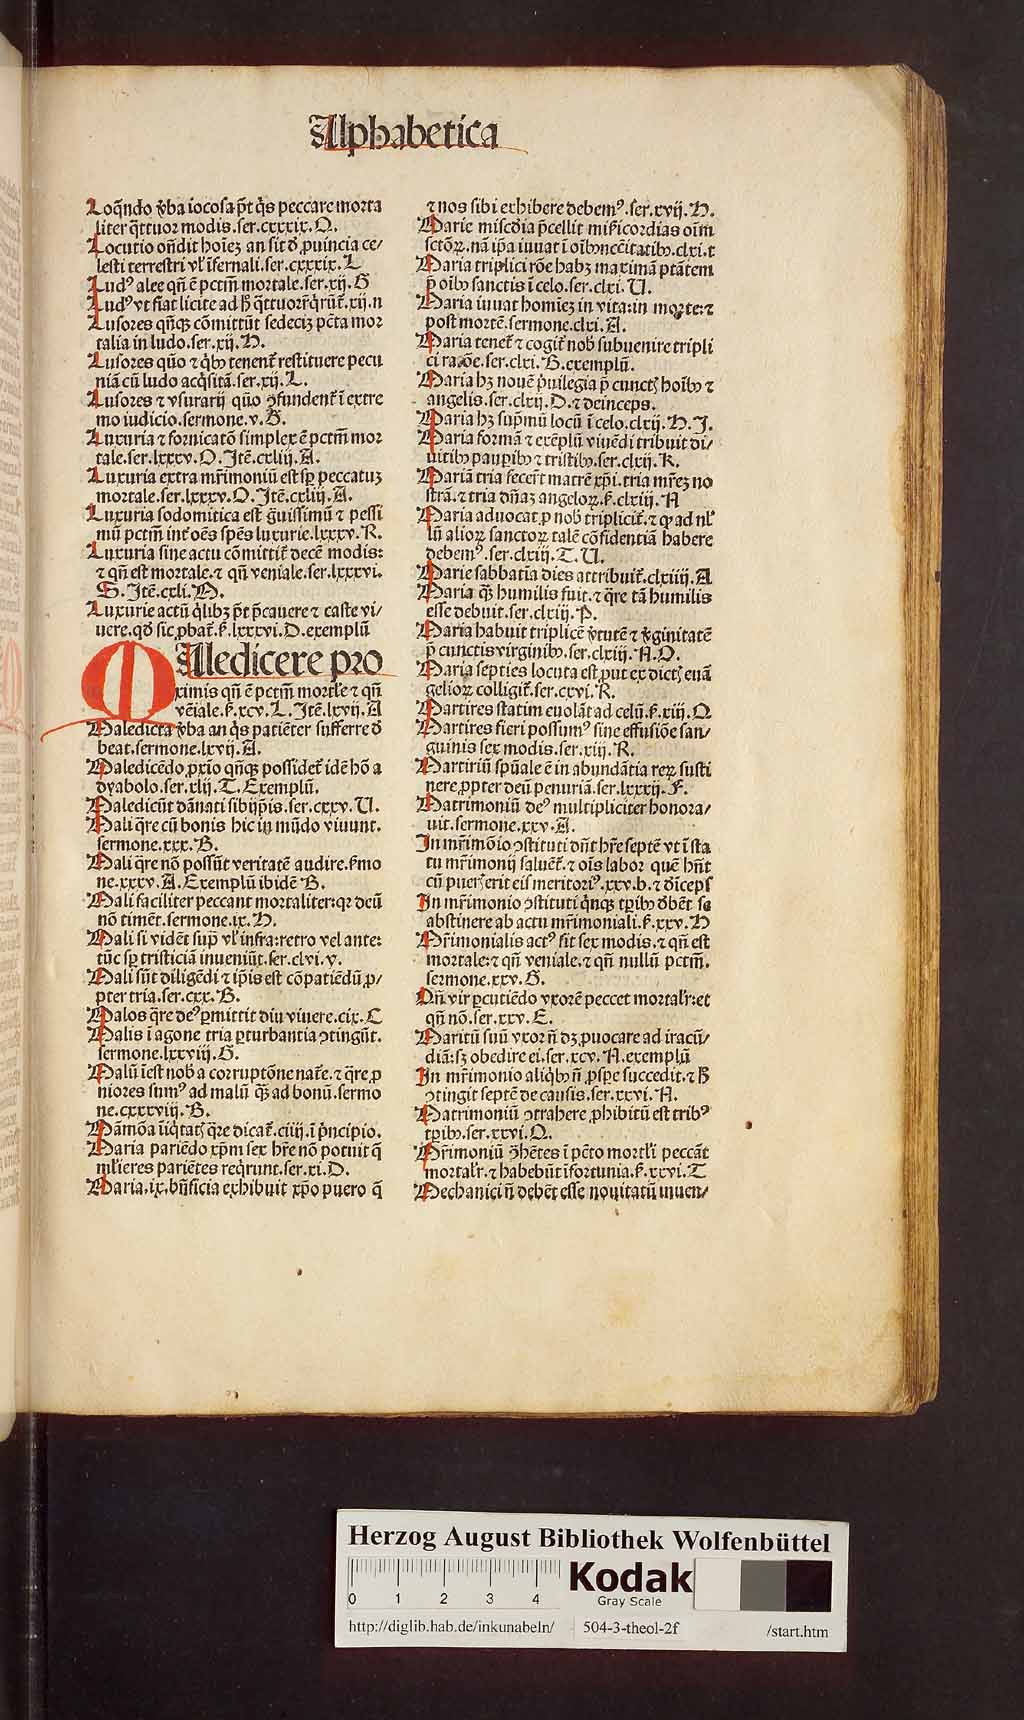 Alphabetica
Loq̄ndo v̓ba iocosa p̄t q̇s peccare morta
liter q̄ttuor modis.ser.cxxxix.O.
Locutio on̄dit hoīez an sit d̓ ꝓuincia ce/
lesti terrestri vl̓ īfernali.ser.cxxxix.L
Ludꝰ alee qn̄ ē pctm̄ mortale.ser.xij.G
Ludꝰ vt fiat licite ad h̄ q̄ttuor rq̇rūt̄.xij.n
Lusores qn̄qꝫ cōmittūt sedeciꝫ pctā mor
talia in ludo.ser.xij.H.
Lusores quō ⁊ q̇bꝰ tenent̄ restituere pecu
niā cū ludo acq̇sitā.ser.xij.L.
Lusores ⁊ vsurarij quō ꝯfundent̄ ī extre
mo iudicio.sermone.v.B.
Luxuria ⁊ fornicatō simplex ē pctm̄ mor
tale.ser.lxxxv.O.Itē.cxliij.A.
Luxuria extra mr̄imoniū est sꝑ peccatuꝫ
mortale.ser.lxxxv.O.Itē.cxliij.A.
Luxuria sodomitica est g̓uissimū ⁊ pessi
mū pctm̄ int̓ oēs spēs luxurie.lxxxv.R.
Luxuria sine actu cōmittit̄ decē modis:
⁊ qn̄ est mortale.⁊ qn̄ veniale.ser.lxxxvi.
S.Itē.cxli.M.
Luxurie actū q̇libꝫ p̄t p̄cauere ⁊ caste vi/
uere.qd̓ sic ꝓbat̄.ẜ.lxxxvi.D.exemplū
Maledicere pro
ximis qn̄ ē pctm̄ mortl̓e ⁊ qn̄
vēiale.ẜ.xcv.L.Itē.lxvij.A
Maledicta v̓ba an q̇s patiēter sufferre d̓
beat.sermone.lxvij.A.
Maledicēdo ꝓxīo qn̄qꝫ possidet̄ idē hō a
dyabolo.ser.xlij.T.Exemplū.
Maledicūt dānati sibijp̄is.ser.cxxv.U.
Mali q̄re cū bonis hic in mūdo viuunt.
sermone.xxx.B.
Mali q̄re nō possūt veritatē audire.ẜmo
ne.xxxv.A.Exemplū ibidē B.
Mali faciliter peccant mortaliter:qꝛ deū
nō timēt.sermone.ix.H.
Mali si vidēt sup̄ vl̓ infra:retro vel ante:
tūc sꝑ tristiciā inueniūt.ser.clvi.v.
Mali sūt diligēdi ⁊ ip̄is est cōpatiēdū ꝓ/
pter tria.ser.cxx.B.
Malos q̄re deꝰ ꝑmittit diu viuere.cix.C
Malis ī agone tria ꝑturbantia ↄtingūt.
sermone.lxxviij.G.
Malū īest nob̓ a corruptōne nat̄e.⁊ q̄re ꝓ
niores sumꝰ ad malū q̄ꝫ ad bonū.sermo
ne.cxxxviij.B.
Māmōa īiq̇tatꝭ q̄re dicat̄.ciiij.ī pͥncipio.
Maria pariēdo xp̄m sex hr̄e nō potuit q̄
ml̓ieres pariētes reqrunt.ser.xi.D.
Maria.ix.bn̄ficia exhibuit xp̄o puero q̄
⁊ nos sibi exhibere debemꝰ.ser.xvij.H.
Marie misc̓dia p̄cellit mīẜicordias oīm
sctōꝝ.nā ip̄a iuuat ī oībꝰ ncc̄itatibꝰ.clxi.t
Maria triplici rōe habꝫ maximā ptātem
p̄ oībꝰ sanctis ī celo.ser.clxi.U.
Maria iuuat homīeꝫ in vita:in morte:⁊
post mortē.sermone.clxi.A.
Maria tenet̄ ⁊ cogit̄ nob̓ subuenire tripli
ci ratōe.ser.clxi.B.exemplū.
Maria hꝫ nouē p̄uilegia p̄ cunctꝭ hoībꝰ ⁊
angelis.ser.clxij.D.⁊ deinceps.
Maria hꝫ sup̄mū locū ī celo.clxij.H.I.
Maria formā ⁊ exēplū viuēdi tribuit di/
uitibꝰ pauꝑibꝰ ⁊ tristibꝰ.ser.clxij.K.
Mariā tria fecer̄t matrē xp̄i.tria mr̄eꝫ no
strā.⁊ tria dn̄aꝫ angeloꝝ.ẜ.clxiij.A
Maria aduocat ꝓ nob̓ triplicit̄.⁊ ꝙ ad nl̓
lū alioꝝ sanctoꝝ talē cōfidentiā habere
debemꝰ.ser.clxiij.T.U.
Marie sabbatīa dies attribuit̄.clxiiij.A
Maria q̄ꝫ humilis fuit.⁊ q̄re tā humilis
esse debuit.ser.clxiij.P.
Maria habuit triplicē v̓tutē ⁊ v̓ginitatē
p̄ cunctis virginibꝰ.ser.clxiij.N.O.
Maria septies locuta est ꝓut ex dictꝭ euā
gelioꝝ colligit̄.ser.cxvi.R.
Martires statim euolāt ad celū.ẜ.xiij.Q
Martires fieri possumꝰ sine effusiōe san/
guinis sex modis.ser.xiij.R.
Martiriū sp̄uale ē in abundātia reꝝ susti
nere ꝓpter deū penuriā.ser.lxxxij.F.
Matrimoniū deꝰ multipliciter honora/
uit.sermone.xxv.A.
In mr̄imōio ↄstituti dn̄t hr̄e septē vt ī sta
tu mr̄imonij saluet̄.⁊ oīs labor quē hn̄t
cū puerꝭ erit eis meritoriꝰ.xxv.b.⁊ d̓iceps
In mr̄imonio ↄstituti q̇nqꝫ tꝑibꝰ d̓bēt se
abstinere ab actu mr̄imoniali.ẜ.xxv.H
Mr̄imonialis actꝰ fit sex modis.⁊ qn̄ est
mortale:⁊ qn̄ veniale.⁊ qn̄ nullū pctm̄.
sermone.xxv.G.
Qn̄ vir ꝑcutiēdo vxorē peccet mortal̓r:et
qn̄ nō.ser.xxv.E.
Maritū suū vxor n̄ dꝫ ꝓuocare ad iracū/
diā:sꝫ obedire ei.ser.xcv.N.exemplū
In mr̄imonio aliq̇bꝰ n̄ ꝓspe succedit.⁊ h̄
ↄtingit septē de causis.ser.xxvi.N.
Matrimoniū ↄtrahere ꝓhibitū est tribꝰ
tꝑibꝰ.ser.xxvi.Q.
Mr̄imoniū ꝯhētes ī pctō mortl̓i peccāt
mortal̓r.⁊ habebūt īfortunia.ẜ.xxvi.T
Mechanici n̄ debēt esse nouitatū inuen/
Herzog August Bibliothek Wolfenbüttel
0 1 2 3 4
Kodak
Gray Scale
http://diglib.hab.de/inkunabeln/ 504-3-theol-2f /start.htm